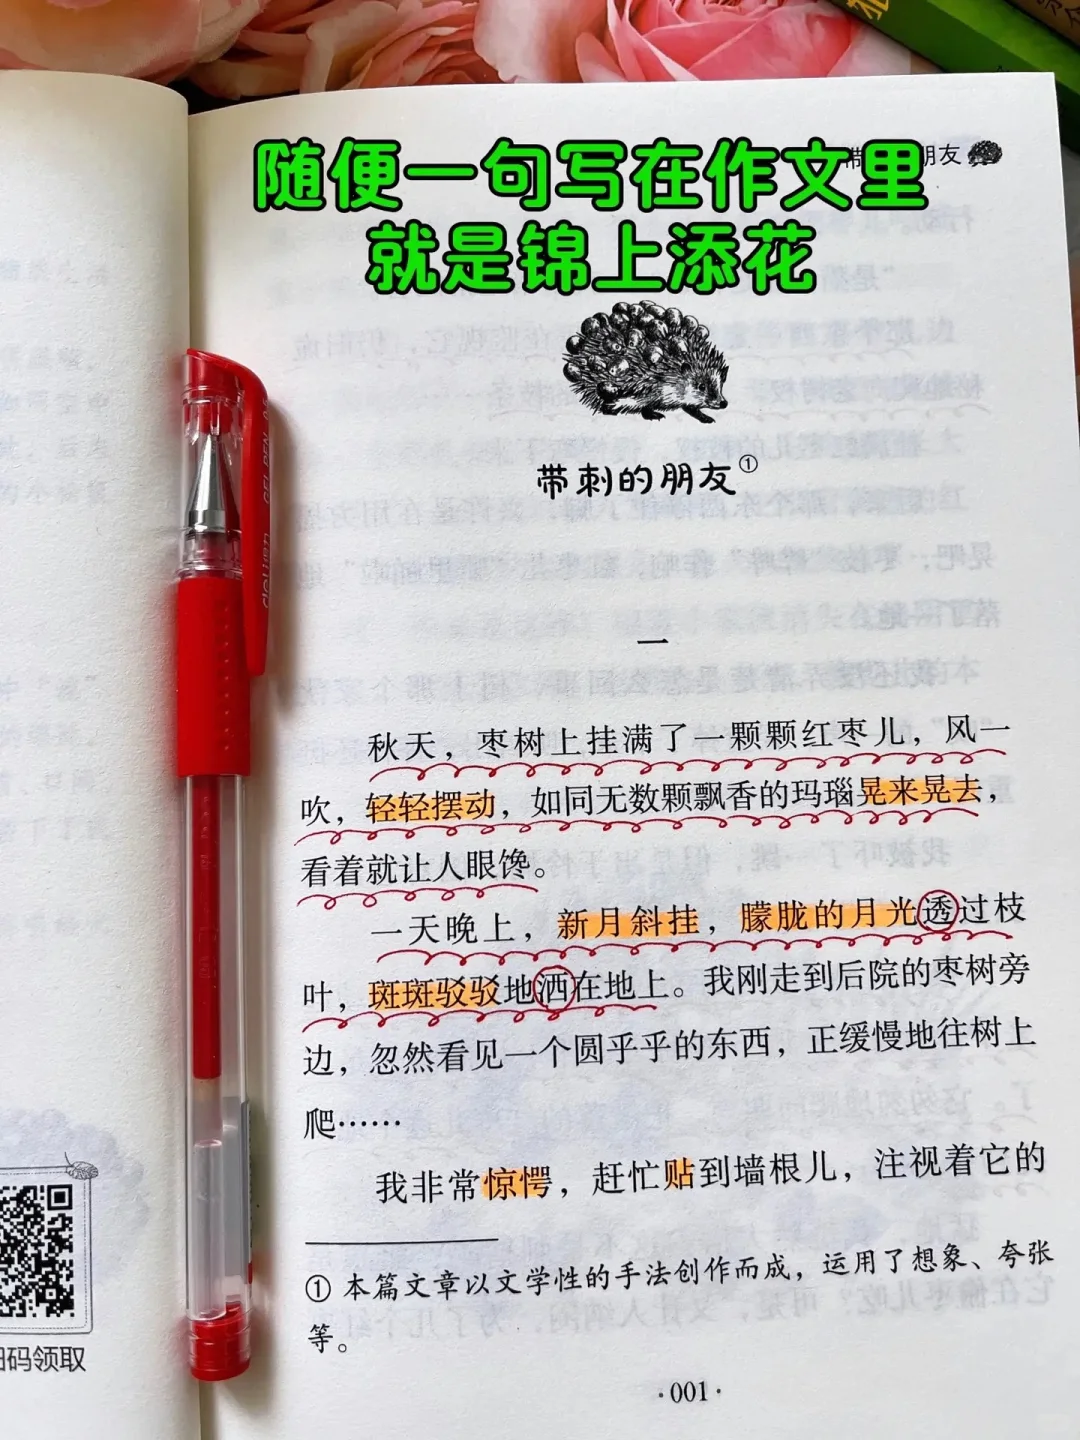 随便一句写在作文里
就是锦上添花
朋友
带刺的朋友①
一
秋天，枣树上挂满了一颗颗红枣儿，风一
吹，轻轻摆动，如同无数颗飘香的玛瑙晃来晃去，
看着就让人眼馋。
一天晚上，新月斜挂，朦胧的月光透过枝
叶，斑斑驳驳地洒在地上。我刚走到后院的枣树旁
边，忽然看见一个圆乎乎的东西，正缓慢地往树上
爬……
我非常惊愕，赶忙贴到墙根儿，注视着它的
① 本篇文章以文学性的手法创作而成，运用了想象、夸张
等。
·001·
码领取
deli得力 GEL PEN